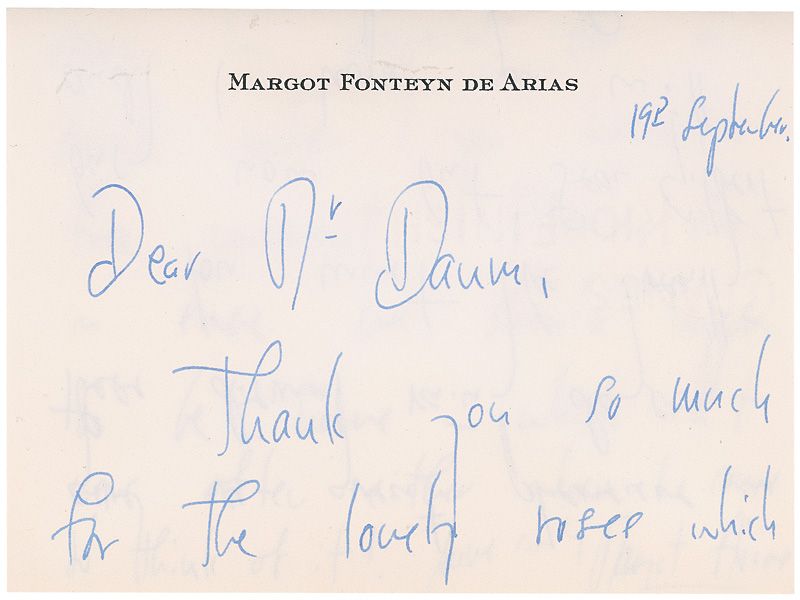 MARGOT FONTEYN DE ARIAS
19th September.
Dear Dr Daum,
Thank you so much
for the lovely roses which